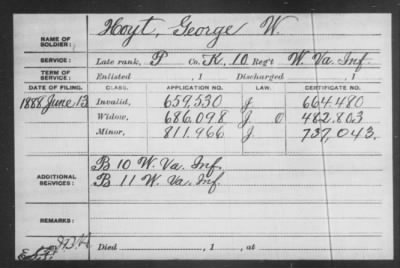 NAME OF SOLDIER: Hoyt, George W.
SERVICE: Late rank, P Co. K, 10 Reg't W. Va. Inf.
TERM OF SERVICE: Enlisted , 1 Discharged , 1
DATE OF FILING. CLASS. APPLICATION NO. LAW. CERTIFICATE NO.
1888 June 13 Invalid, 659,530 J. 664,480
Widow, 686,098 J. O 482,803
Minor, 811,966 J. 737,043.
ADDITIONAL SERVICES: B 10 W. Va. Inf.
B 11 W. Va. Inf.
REMARKS:
Died , 1 , at